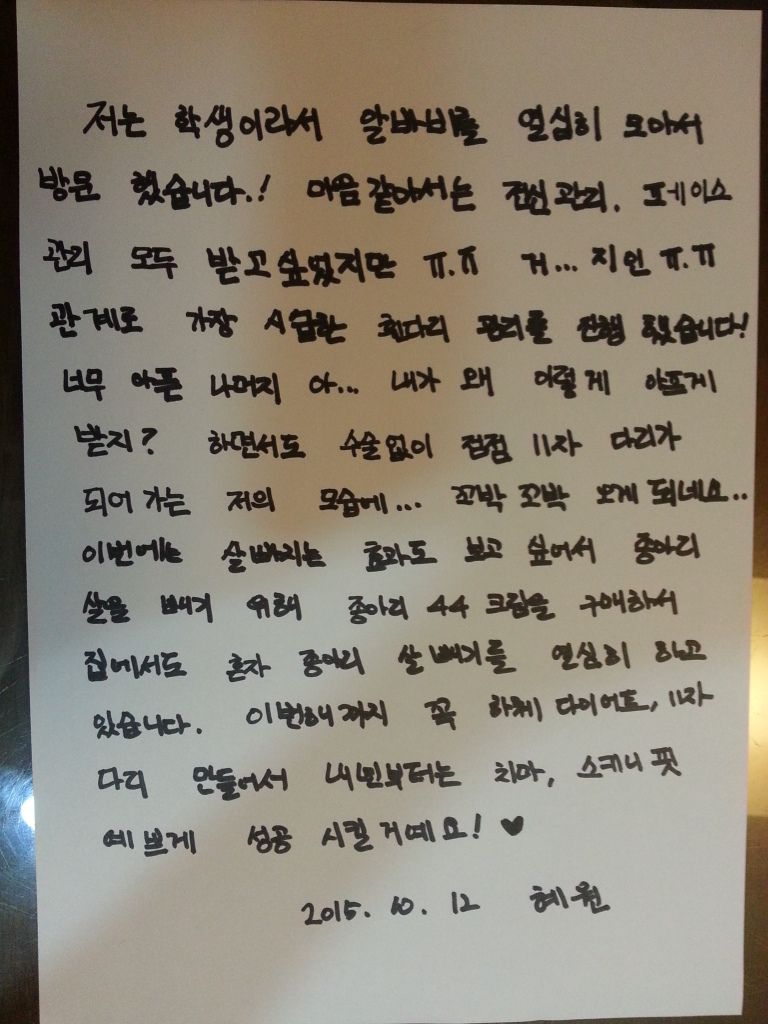 저는 학생이라서 알바비를 열심히 모아서
방문 했습니다.! 마음같아서는 전신관리. 포에이스
관리 모두 받고싶었지만 ㅠ.ㅠ 거...지인 ㅠ.ㅠ
관계로 가장 시급한 휜다리 관리를 진행 했습니다!
너무 아픈 나머지 아... 내가 왜 이렇게 아프게
받지? 하면서도 수술없이 점점 11자 다리가
되어가는 저의 모습에... 꼬박 꼬박 오게 되네요..
이번에는 살빠지는 효과도 보고 싶어서 종아리
살을 빼기 위해 종아리 44 크림을 구매하서
집에서도 혼자 종아리 살빼기를 열심히 하고
있습니다. 이번해까지 꼭 하체 다이어트, 11자
다리 만들어서 내년부터는 치마, 스키니 핏
예쁘게 성공 시킬거예요! ♥
2015. 10. 12 혜원